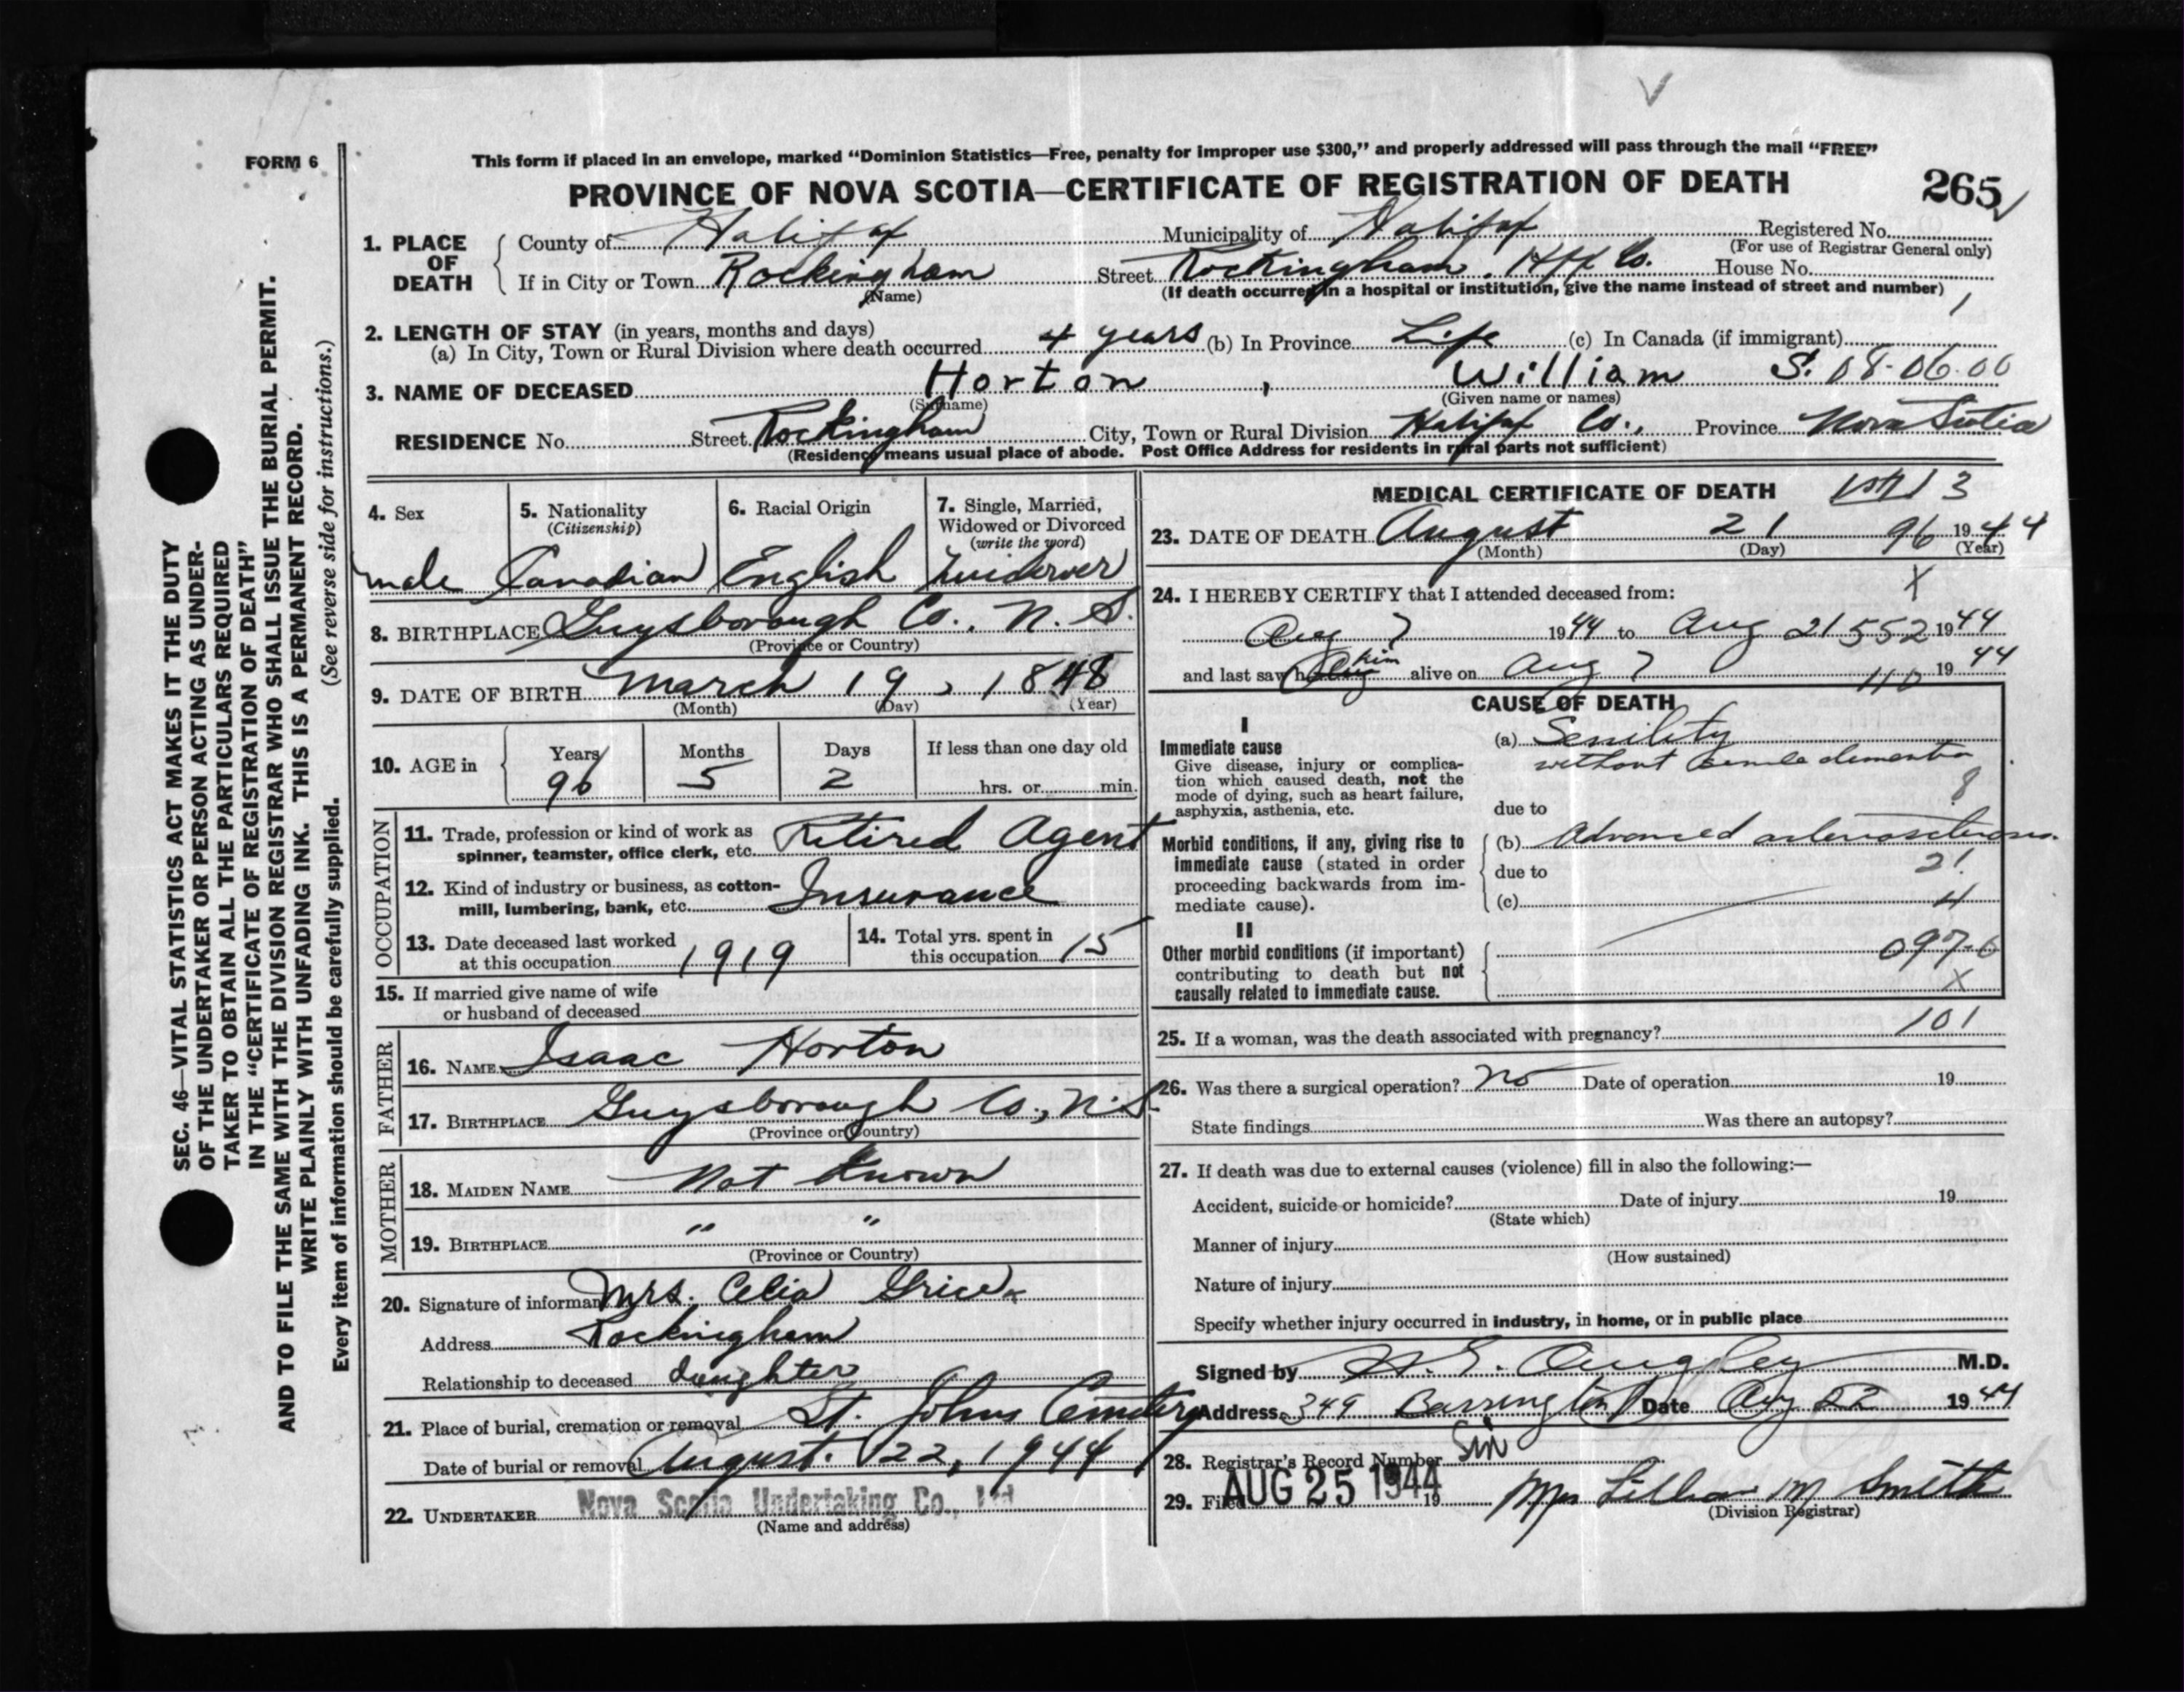 FORM 6
This form if placed in an envelope, marked “Dominion Statistics—Free, penalty for improper use $300,” and properly addressed will pass through the mail “FREE”
PROVINCE OF NOVA SCOTIA—CERTIFICATE OF REGISTRATION OF DEATH
265
1. PLACE OF DEATH
County of Halifax Municipality of Halifax Registered No.
(For use of Registrar General only)
If in City or Town Rockingham Street Rockingham, Hfx Co. House No.
(Name) (If death occurred in a hospital or institution, give the name instead of street and number)
2. LENGTH OF STAY (in years, months and days)
(a) In City, Town or Rural Division where death occurred 4 years (b) In Province Life (c) In Canada (if immigrant)
3. NAME OF DECEASED Horton, William S. 08-06.00
(Surname) (Given name or names)
RESIDENCE No. Street Rockingham City, Town or Rural Division Halifax Co., Province Nova Scotia
(Residence means usual place of abode. Post Office Address for residents in rural parts not sufficient)
4. Sex
male
5. Nationality
(Citizenship)
Canadian
6. Racial Origin
English
7. Single, Married,
Widowed or Divorced
(write the word)
Widower
8. BIRTHPLACE Guysborough Co., N. S.
(Province or Country)
9. DATE OF BIRTH March 19, 1848
(Month) (Day) (Year)
10. AGE in
Years Months Days If less than one day old
96 5 2 hrs. or min.
OCCUPATION
11. Trade, profession or kind of work as
spinner, teamster, office clerk, etc. Retired Agent
12. Kind of industry or business, as cotton-
mill, lumbering, bank, etc. Insurance
13. Date deceased last worked
at this occupation 1919
14. Total yrs. spent in
this occupation 15
15. If married give name of wife
or husband of deceased
FATHER
16. NAME Isaac Horton
17. BIRTHPLACE Guysborough Co., N.S.
(Province or Country)
MOTHER
18. MAIDEN NAME Not Known
19. BIRTHPLACE " "
(Province or Country)
20. Signature of informant Mrs. Celia Grice
Address Rockingham
Relationship to deceased daughter
21. Place of burial, cremation or removal St. Johns Cemetery
Date of burial or removal August. 22, 1944
22. UNDERTAKER Nova Scotia Undertaking Co., Ltd
(Name and address)
MEDICAL CERTIFICATE OF DEATH 3
23. DATE OF DEATH August 21 96 1944
(Month) (Day) (Year)
24. I HEREBY CERTIFY that I attended deceased from: X
Aug 7 1944 to Aug 21 552 1944
and last saw him alive on Aug 7 110 1944
CAUSE OF DEATH
I
Immediate cause
Give disease, injury or complica-
tion which caused death, not the
mode of dying, such as heart failure,
asphyxia, asthenia, etc.
(a) Senility
without senile dementia
8
due to
Morbid conditions, if any, giving rise to
immediate cause (stated in order
proceeding backwards from im-
mediate cause).
(b) Advanced arteriosclerosis.
due to 21
(c) 4
II
Other morbid conditions (if important)
contributing to death but not
causally related to immediate cause.
097-6
X
25. If a woman, was the death associated with pregnancy? 101
26. Was there a surgical operation? No Date of operation 19
State findings Was there an autopsy?
27. If death was due to external causes (violence) fill in also the following:—
Accident, suicide or homicide? Date of injury 19
(State which)
Manner of injury
(How sustained)
Nature of injury
Specify whether injury occurred in industry, in home, or in public place
Signed by M.D.
Address 349 Barrington Date Aug 22 1944
28. Registrar's Record Number Six
29. Filed AUG 25 1944 19 Mrs Lillian M Smith
(Division Registrar)
SEC. 46—VITAL STATISTICS ACT MAKES IT THE DUTY
OF THE UNDERTAKER OR PERSON ACTING AS UNDER-
TAKER TO OBTAIN ALL THE PARTICULARS REQUIRED
IN THE “CERTIFICATE OF REGISTRATION OF DEATH”
AND TO FILE THE SAME WITH THE DIVISION REGISTRAR WHO SHALL ISSUE THE BURIAL PERMIT.
WRITE PLAINLY WITH UNFADING INK. THIS IS A PERMANENT RECORD.
Every item of information should be carefully supplied. (See reverse side for instructions.)